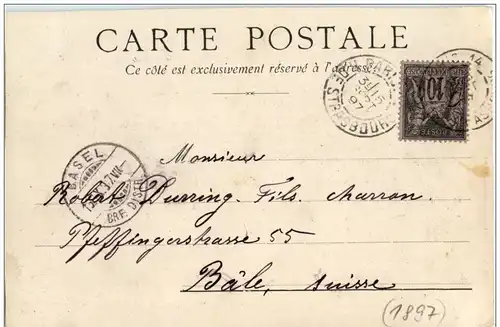 CARTE POSTALE
Ce côté est exclusivement réservé à l'adresse
Monsieur
Robert Durring. Fils. charron.
Pfeffingerstrasse 55
Bâle, Suisse
(1897)
BASEL
10